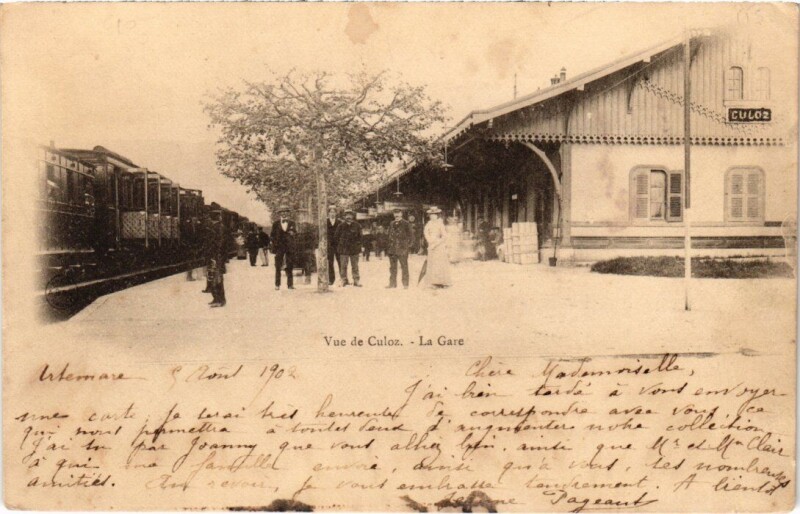 CULOZ
Vue de Culoz. - La Gare
Artemare 5 Août 1902 Chère Mademoiselle,
J'ai bien tardé à vous envoyer
une carte. Je serai très heureuse de correspondre avec vous, ce
qui nous permettra à toutes deux d'augmenter notre collection
J'ai su par Joanny que vous alliez bien, ainsi que Mr et Mme Clair
à qui ma famille envoie, ainsi qu'à vous, ses nombreuses
amitiés. Au revoir, je vous embrasse tendrement. A bientôt
Pageaut